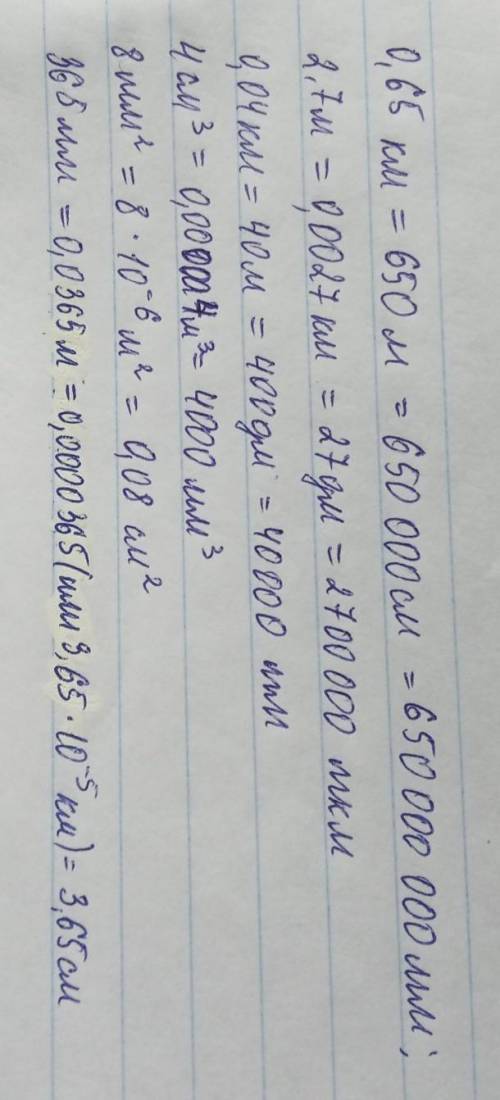 0,65 км = 650 м = 650 000см = 650 000 000мм;
2,7м = 0,0027км = 27дм = 2700 000 мкм
0,04км = 40м = 400дм = 40000 мм
4 см³ = 0,000004м³ = 4000 мм³
8 мм² = 8 · 10⁻⁶ м² = 0,08 см²
365 мм = 0,0365 м = 0,0000365 (или 3,65 · 10⁻⁵ км) = 3,65 см